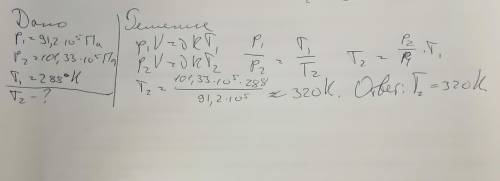 Дано
P₁ = 91,2·10⁵ Па
P₂ = 101,33·10⁵ Па
T₁ = 288°К
T₂ - ?
Решение
p₁V = νRT₁
p₂V = νRT₂
P₁/P₂ = T₁/T₂
T₂ = P₂/P₁ · T₁
T₂ = 101,33·10⁵·288 / 91,2·10⁵ ≈ 320К. Ответ: T₂ = 320К